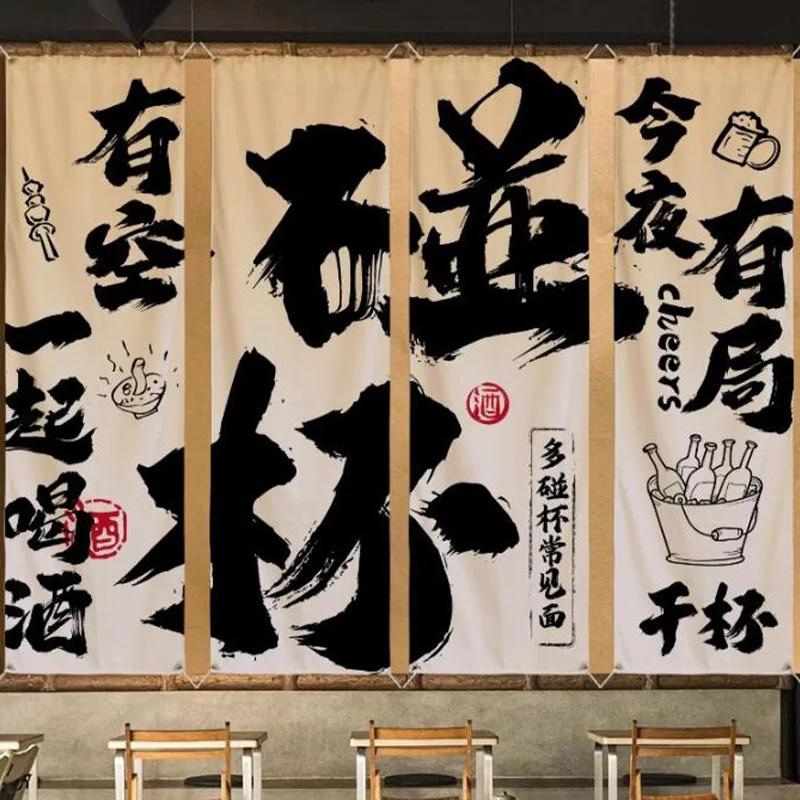 今夜
有局
cheers
干杯
碰杯
酒
多碰杯常见面
有空
一起喝酒
酉